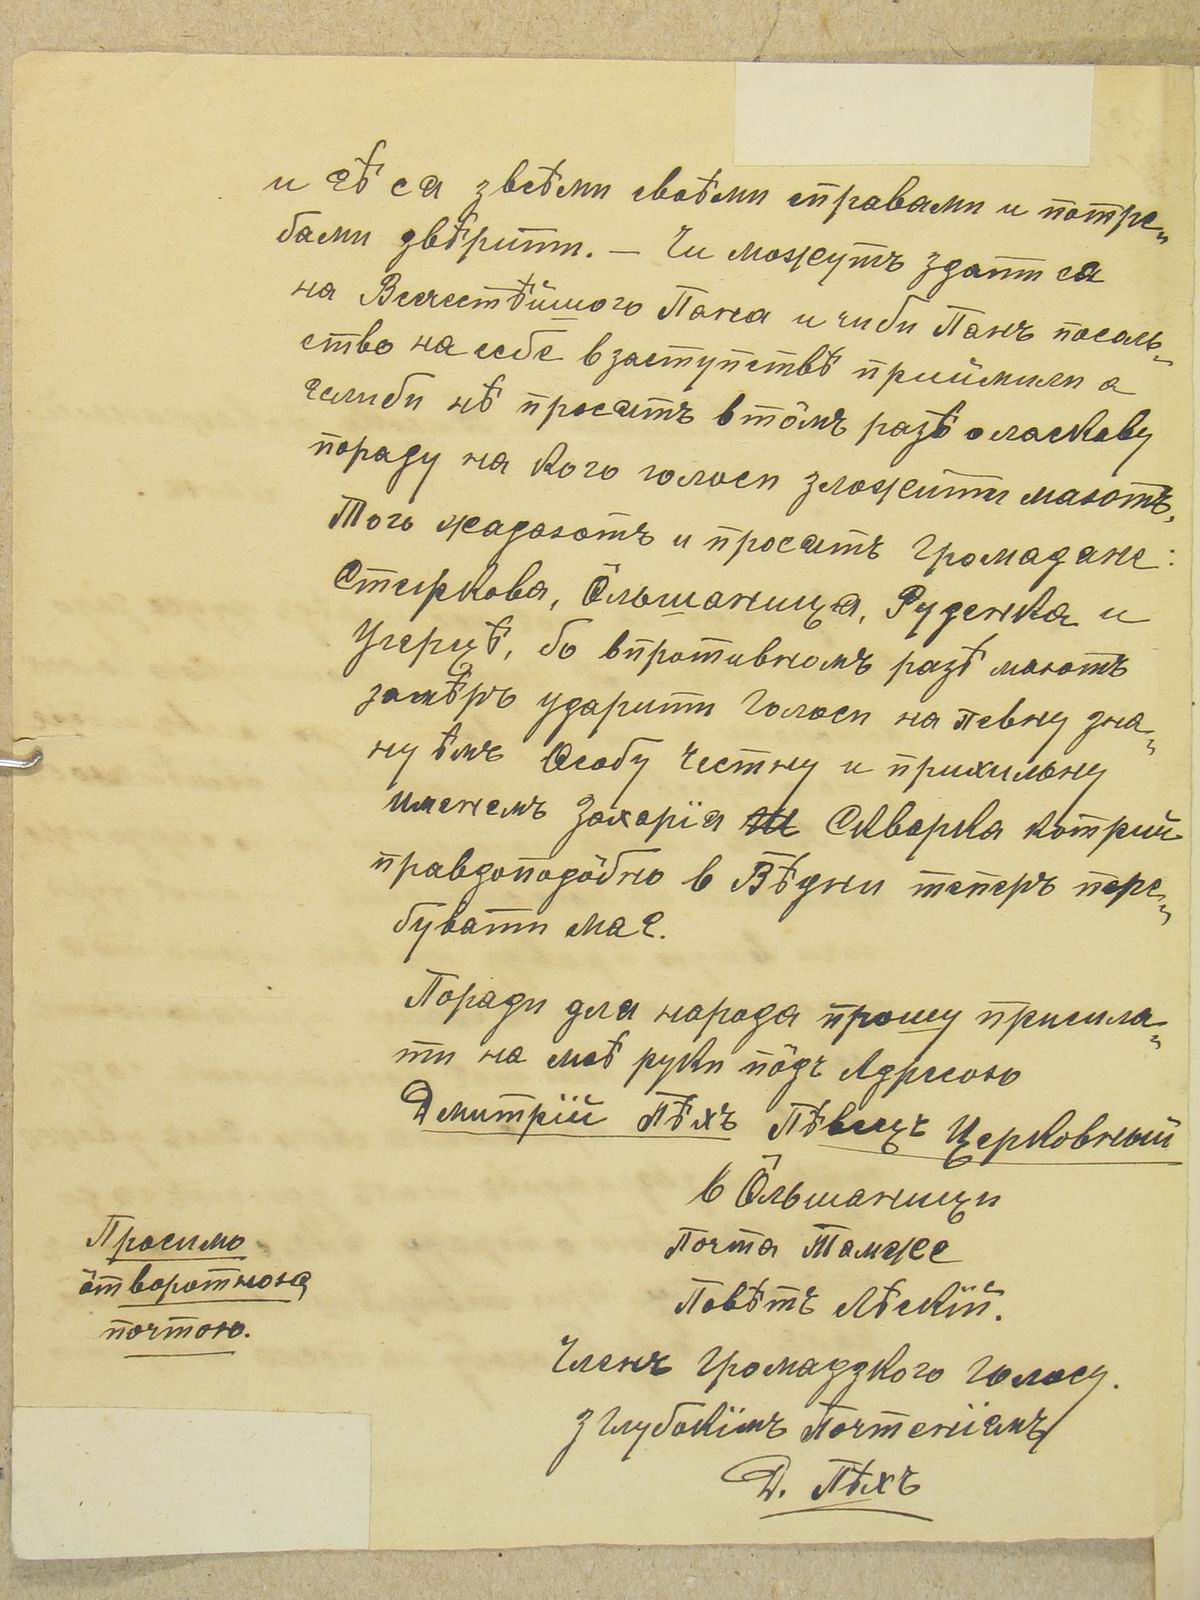 и єѣ ся звсѣми своѣми справами и потре„
бами двѣрити. — Чи можутъ здати ся
на Всечестѣйшого Пана и чиби Панъ посоль„
ство на себе в заступствѣ приймили а
єслиби нѣ просятъ в тôмъ разѣ о ласкаву
пораду на кого голоси зложити маютъ.
Того жадаютъ и просятъ Громадяне:
Стеркова, Ôльшаниця, Руденка и
Угерцѣ, бо в противномъ разѣ маютъ
замѣръ ударити голоси на певну зна„
ну ѣмъ Особу Честну и прихильну
именемъ Захарія Скварка котрий
правдоподôбно в Вѣдни теперь пере„
бувати має.
Поради для народа прошу присила„
ти на моѣ руки пôдъ Адресою
Дмитрій Пѣхъ Пѣвецъ Церковный
в Ôльшаници
Почта Тамже
Повѣтъ Лѣскій.
Членъ Громадзкого Голосу.
з глубокімъ Почтеніємъ
Д. Пѣхъ
Просимо
ôтворотною
почтою.